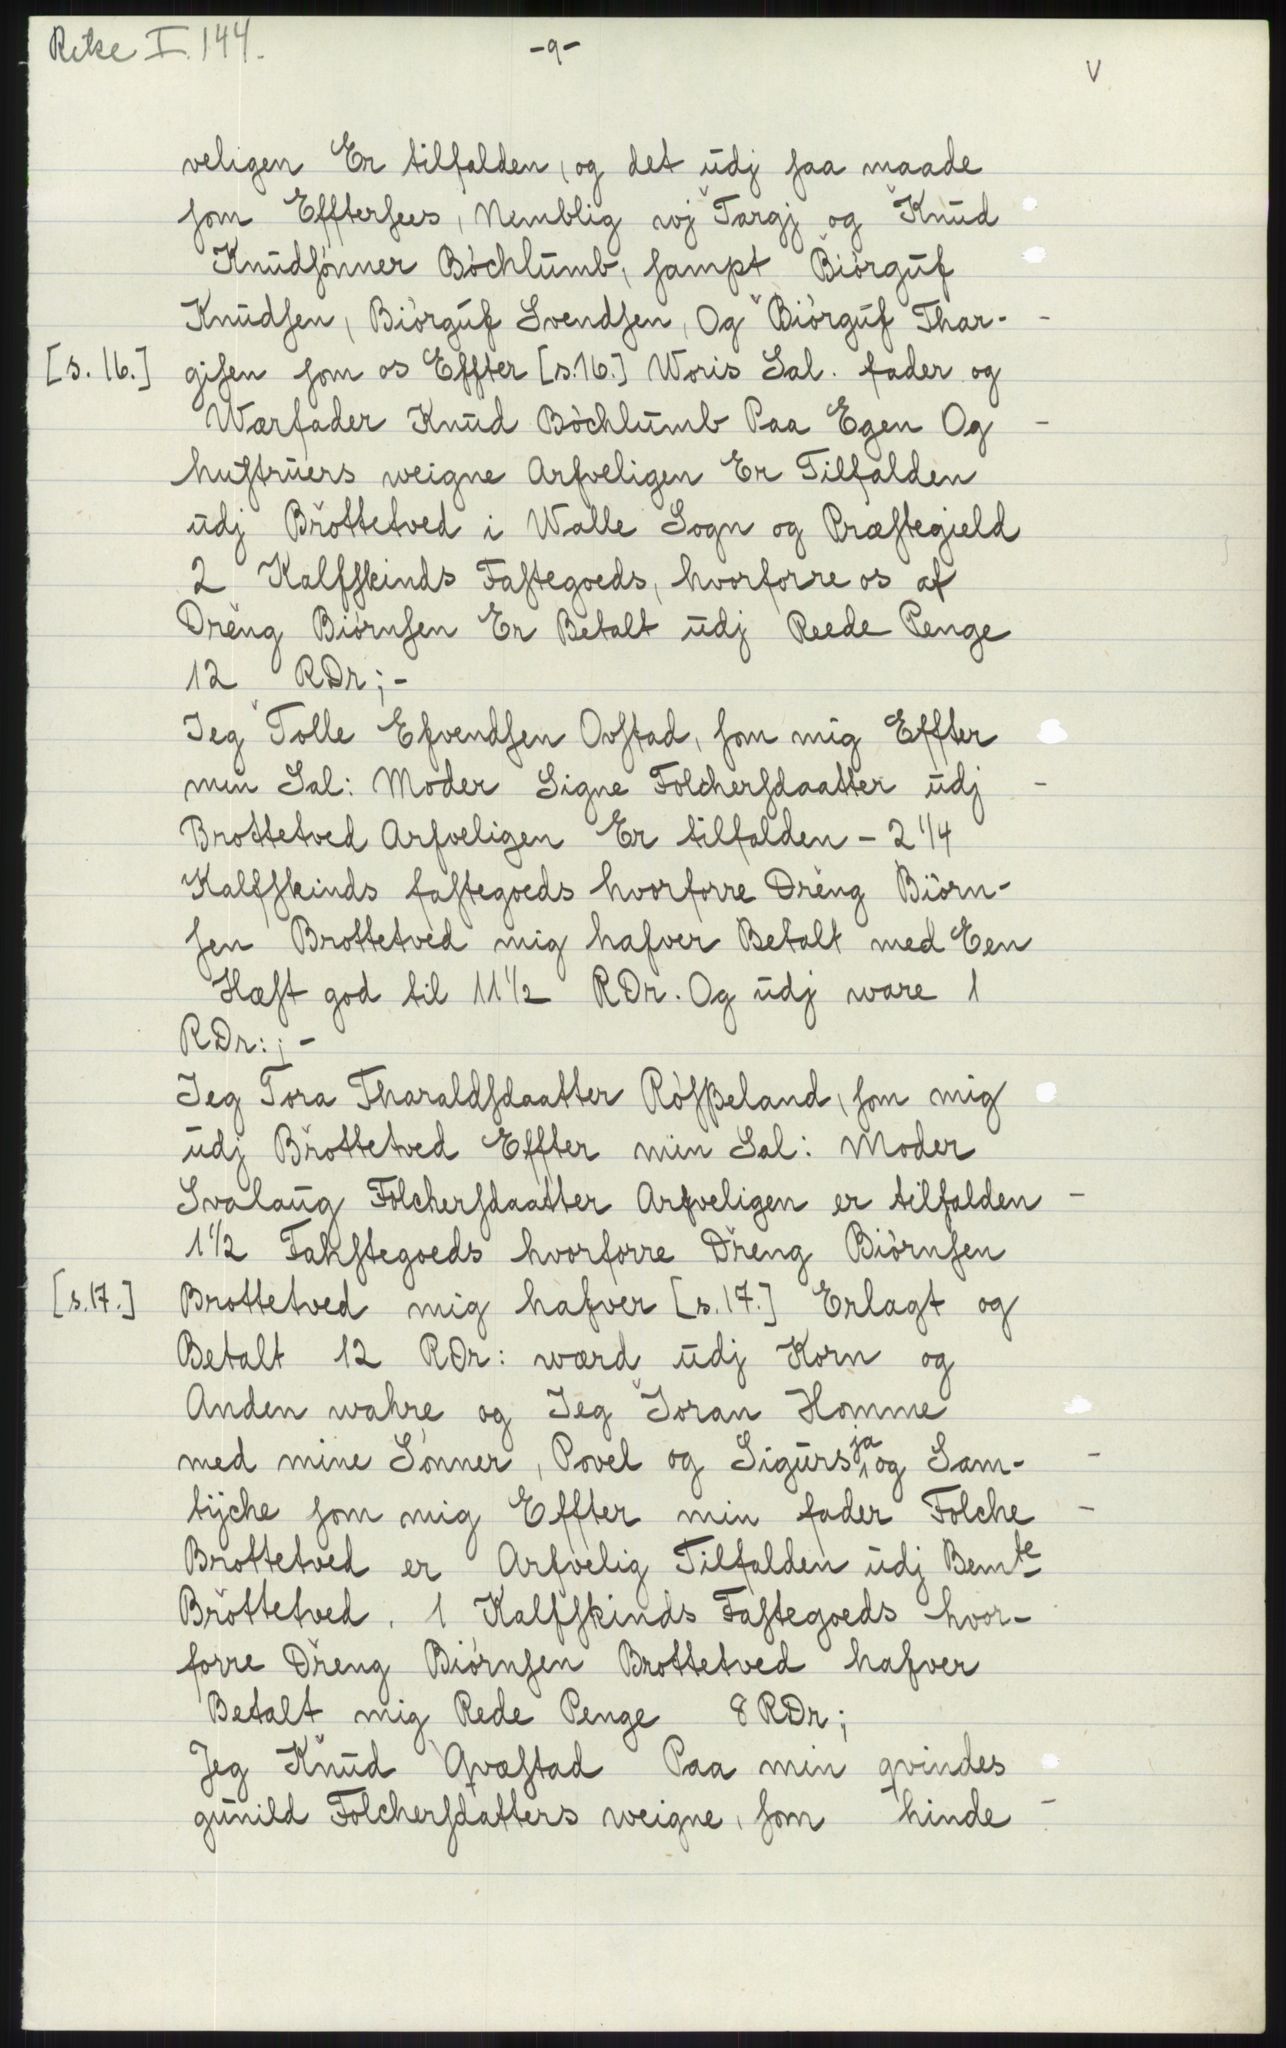 Retke I. 144.
-9-
V
veligen Er tilfalden, og det udj saa maade
som Efftersees, Nemblig wj Targj og Knud
Knudsønner Bøchlumb, sampt Biørguf
Knudsen, Biørguf Svendsen, Og Biørguf Thar-
[s. 16.] gisen som os Effter [s.16.] Woris Sal. fader og
Wærfader Knud Bøchlumb Paa Egen Og
hustruers weigne Arfveligen Er Tilfalden
udj Brottetved i Walle Sogn og Præstegield
2 Kalfskinds Fastegoeds, hvorforre os af
Dreng Biørnsen Er Betalt udj Reede Penge
12 RDr; -
Jeg Tolle Efvendsen Ovstad, som mig Effter
min Sal: Moder Signe Folchersdaatter udj
Brottetved Arfveligen Er tilfalden - 2 1/4
Kalfskinds fastegoeds hvorforre Dreng Biörn-
sen Brottetved mig hafver Betalt med Een
Hæst god til 11 1/2 RDr. Og udj ware 1
RDr:; -
Jeg Tora Tharaldsdaatter Røsßeland, som mig
udj Brottetved Effter min Sal: Moder
Svalaug Folchersdaatter Arfveligen er tilfalden
1 1/2 Fahstegoeds hvorforre Dreng Biørnsen
[s.17.] Brottetved mig hafver [s.17.] Erlagt og
Betalt 12 RDr: wærd udj Korn og
Anden wahre og Jeg Joran Homme
med mine Sønner, Povel og Sigurs ja og Sam-
tijche som mig Effter min fader Folche
Brottetved er Arfvelig Tilfalden udj Bemte
Brottetved. 1 Kalfskinds Fastegoeds hvor-
forre Dreng Biørnsen Brottetved hafver
Betalt mig Rede Penge 8 RDr;
Jeg Knud Qvæstad Paa min qvindes
gunild Folchersdatters weigne, som hinde